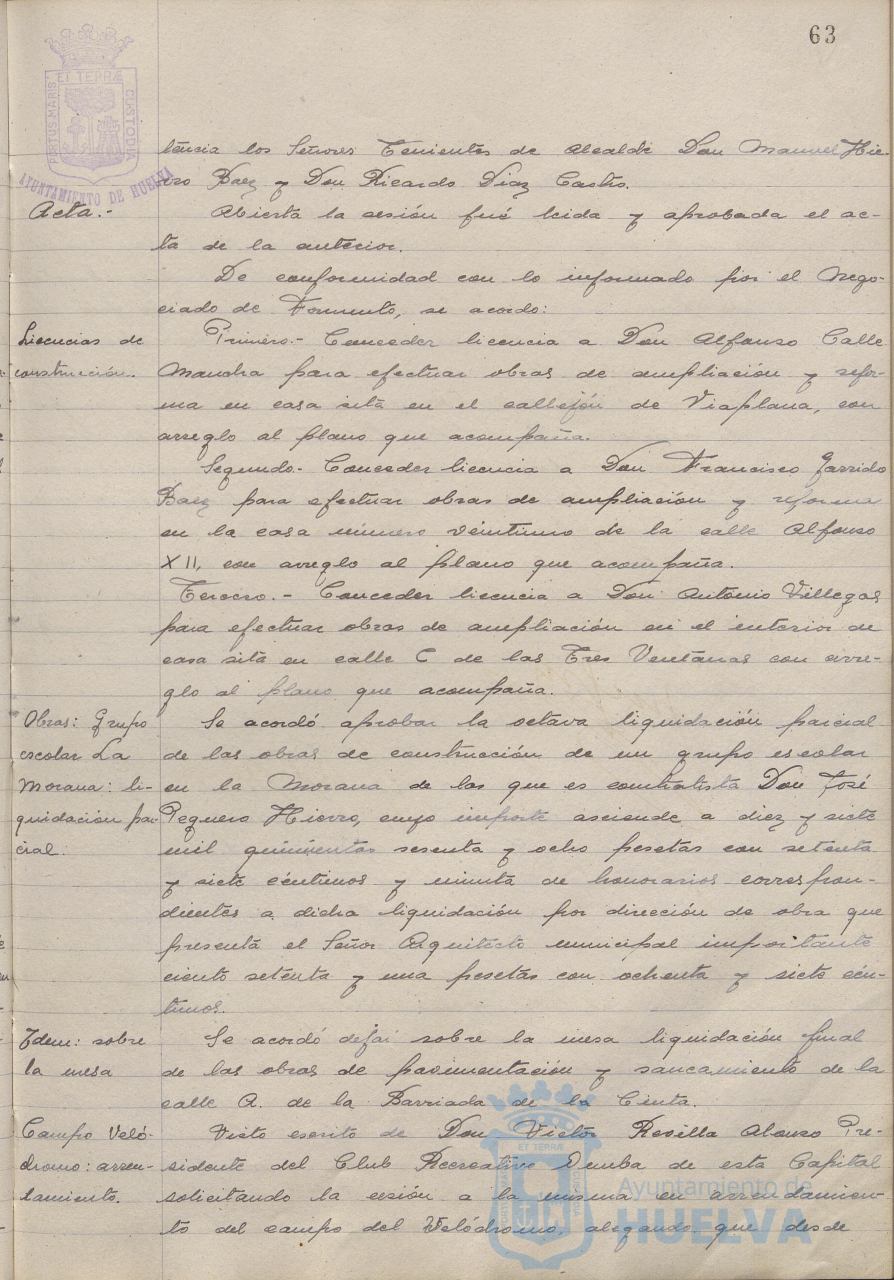 63
PORTUS MARIS ET TERRÆ CUSTODIA
AYUNTAMIENTO DE HUELVA
tencia los Señores Tenientes de Alcalde Don Manuel Hie-
rro Baez y Don Ricardo Diaz Castro.
Acta.-
Abierta la sesión fué leida y aprobada el ac-
ta de la anterior.
De conformidad con lo informado por el Nego-
ciado de Fomento, se acordo:
Licencias de
construcción.
Primero.- Conceder licencia a Don Alfonso Calle
Mancha para efectuar obras de ampliación y refor-
ma en casa sita en el callejón de Viaplana, con
arreglo al plano que acompaña.
Segundo.- Conceder licencia a Don Francisco Garrido
Baez para efectuar obras de ampliación y reforma
en la casa número veintiuno de la calle Alfonso
XII, con arreglo al plano que acompaña.
Tercero.- Conceder licencia a Don Antonio Villegas
para efectuar obras de ampliación en el interior de
casa sita en calle C de las Tres Ventanas con arre-
glo al plano que acompaña.
Obras: Grupo
escolar La
Morana: li-
quidación par-
cial.
Se acordó aprobar la octava liquidación parcial
de las obras de construcción de un grupo escolar
en la Morana de las que es contratista Don José
Peguero Hierro, cuyo importe asciende a diez y siete
mil quinientas sesenta y ocho pesetas con setenta
y siete céntimos y minuta de honorarios correspon-
dientes a dicha liquidación por dirección de obra que
presenta el Señor Arquitecto municipal importante
ciento setenta y una pesetas con ochenta y siete cén-
timos.
Idem: sobre
la mesa
Se acordó dejar sobre la mesa liquidación final
de las obras de pavimentación y saneamiento de la
calle A. de la Barriada de la Cinta.
Campo Veló-
dromo: arren-
damiento.
Visto escrito de Don Victor Revilla Alonso Pre-
sidente del Club Recreativo Onuba de esta Capital
solicitando la cesión a la misma en arrendamien-
to del campo del Velódromo, alegando que desde
Ayuntamiento de
HUELVA